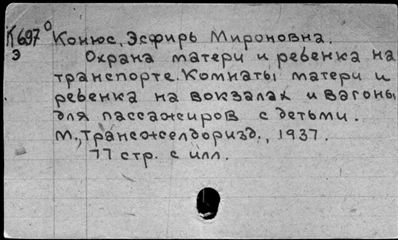 К697 О Конюс, Эсфирь Мироновна.
Э Охрана матери и ребенка на
транспорте. Комнаты матери и
ребенка на вокзалах и вагоны
для пассажиров с детьми.
М., Трансжелдориздат., 1937.
77 стр. с илл.